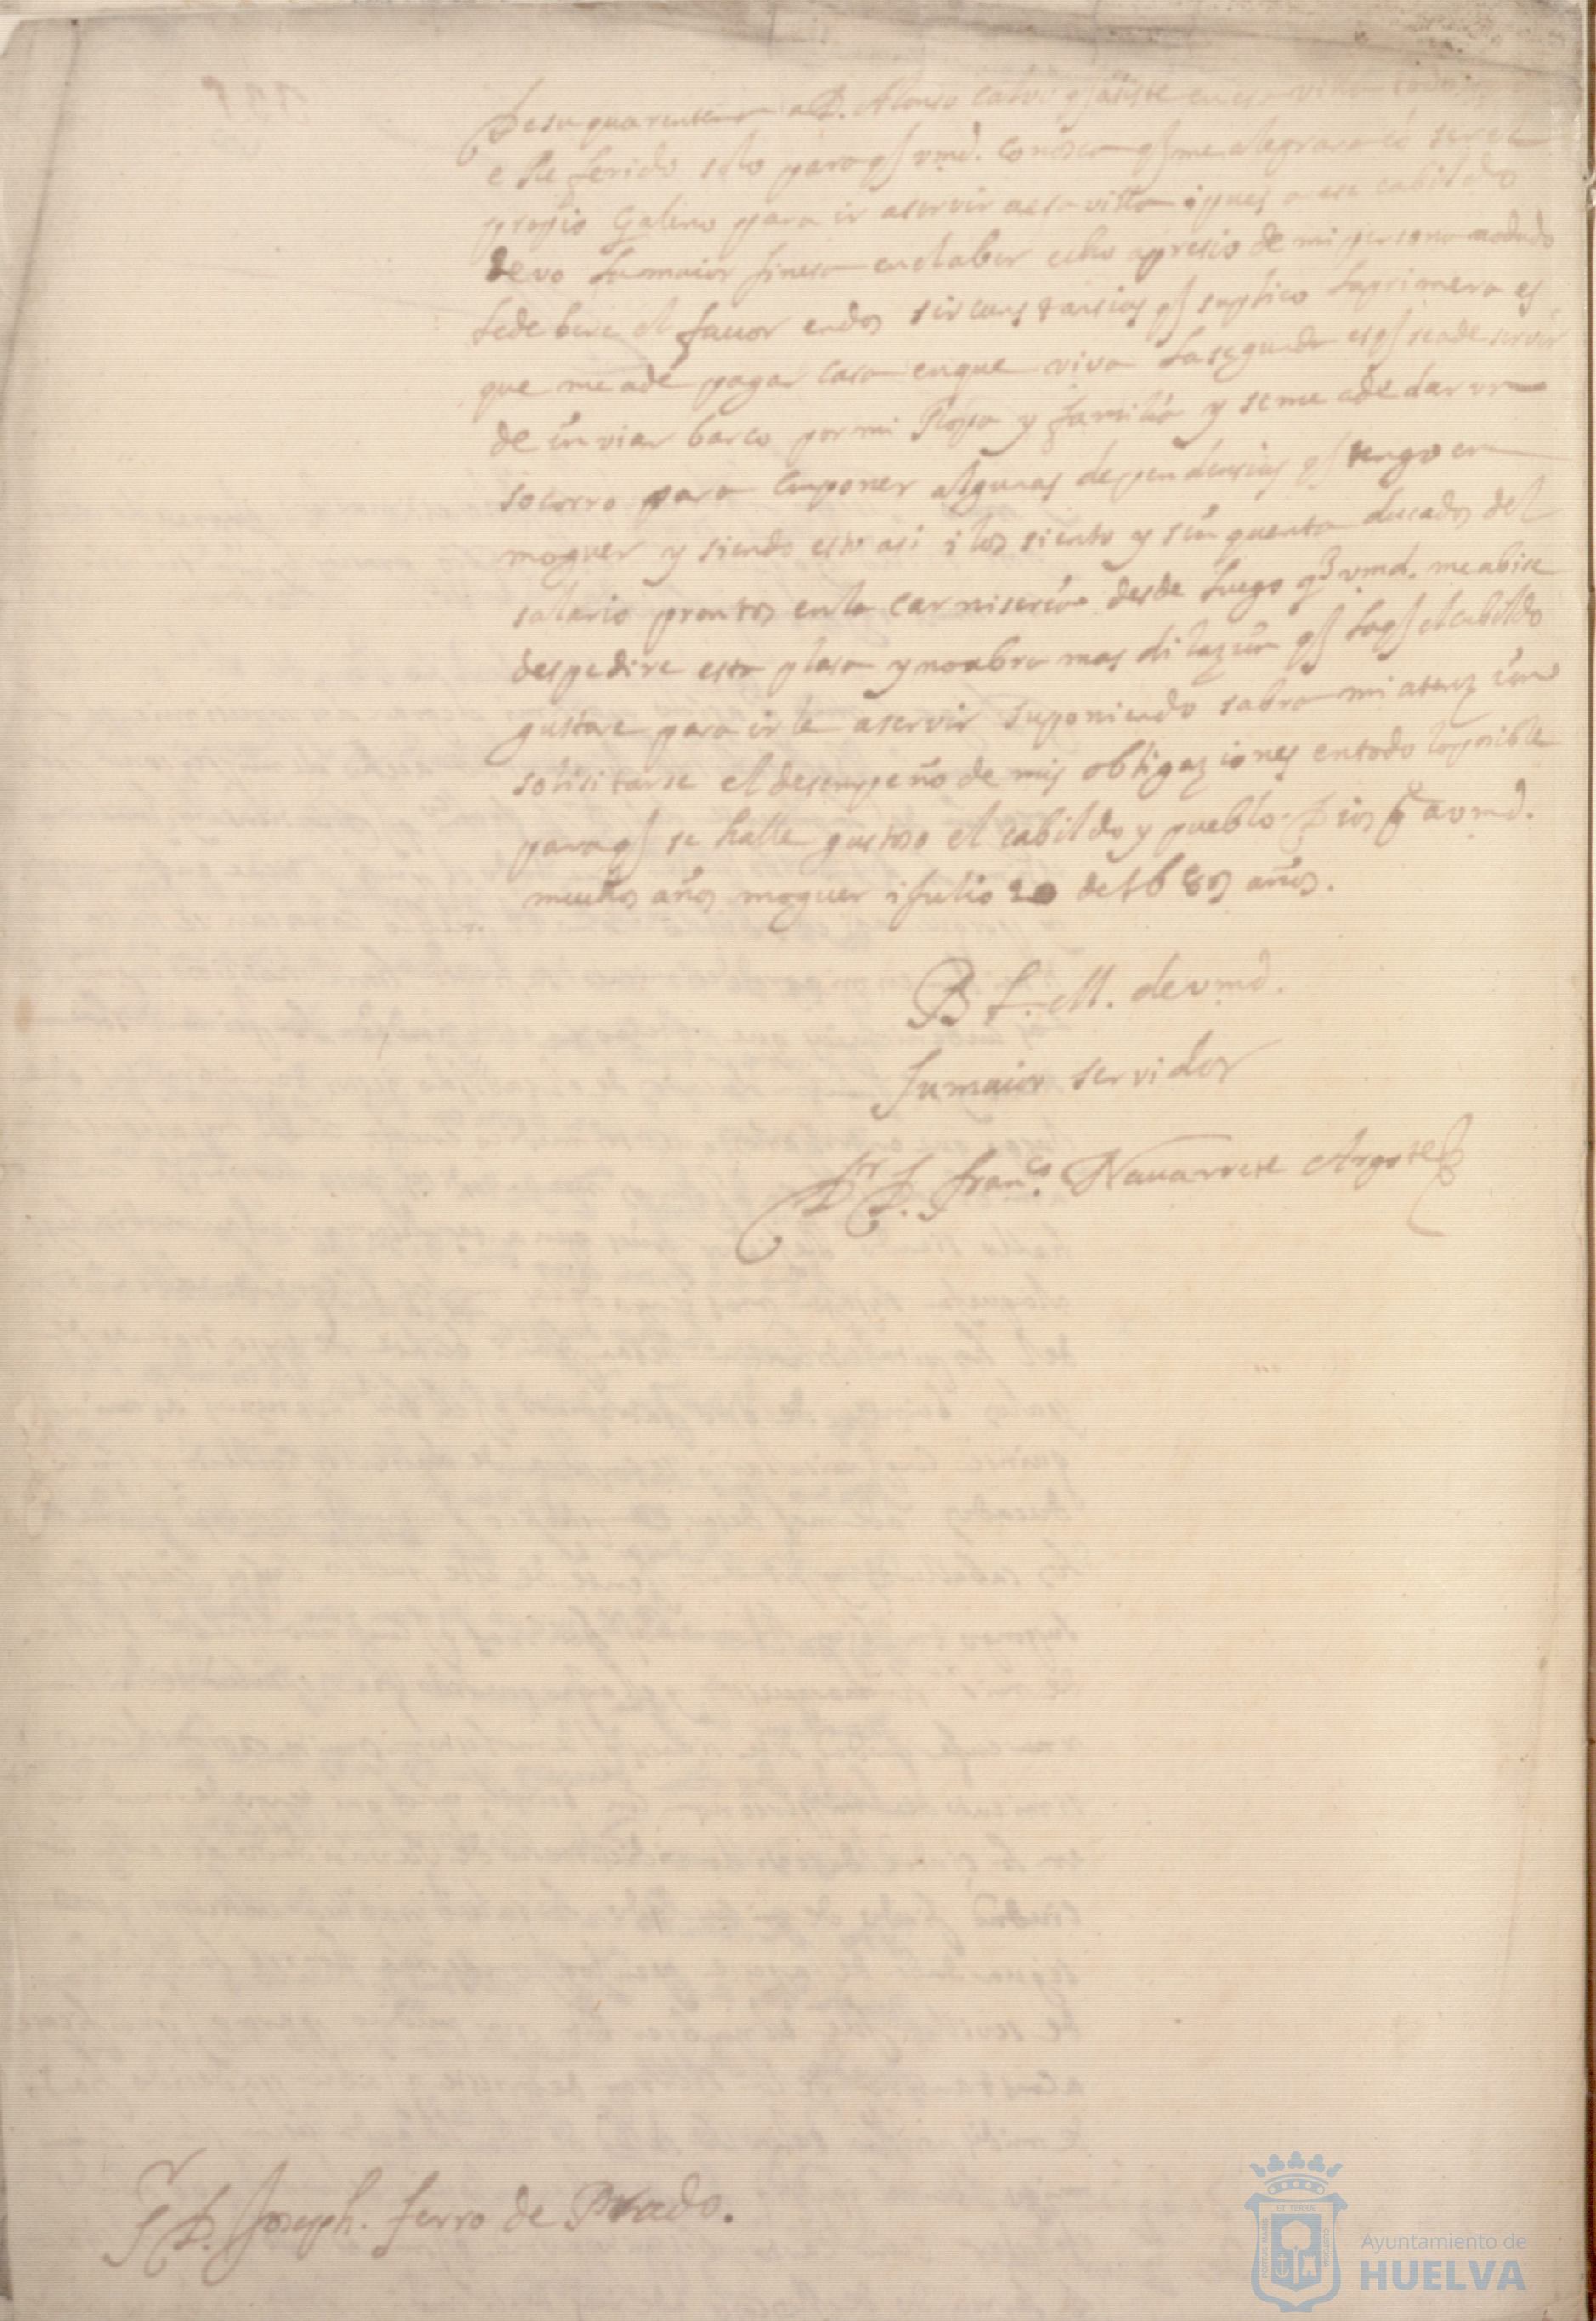 de su quarentena a D. Alonso Calvo q asiste en esa villa todo
e Referido solo para q vmd. conosca q me alegrara ser el
propio Galeno para ir a servir a esa villa i pues a ese cabildo
devo la maior finesa en el aber echo apresio de mi persona
le debere el fauor en dos sircunstansias q suplico la primera es
que me a de pagar casa en que viva la segunda es q se a de servir
de inviar barco por mi Ropa y familia y se me a de dar un
socorro para componer algunas dependensias q tengo en
moguer y siendo esto asi i los siento y sinquenta ducados del
salario prontos en la carniseria desde luego q vmd. me abise
despedire esta plasa y no abra mas dilazion q la q el cabildo
gustare para irle a servir suponiendo sabra mi atenz ion
solisitarse el desempeño de mis obligaziones en todo lo posible
para q se halle gustoso el cabildo y pueblo Dios g a vmd.
muchos años moguer i julio 20 de 1689 años.
B L. M. de vmd.
su maior servidor
Dr D. Franco. Nauarrete Argote
Sr D. Joseph. ferro de Prado.
PORTUS MARIS
ET TERRÆ
CUSTODIA
Ayuntamiento de
HUELVA